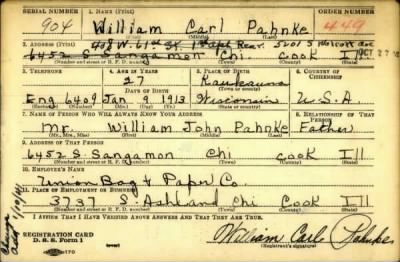 SERIAL NUMBER 1. NAME (Print) ORDER NUMBER
904 William Carl Pahnke 449
(First) (Middle) (Last)
2. ADDRESS (Print)
6452 S. Sangamon Chi Cook Ill
(Number and street or R. F. D. number) (Town) (County) (State)
3. TELEPHONE 4. AGE IN YEARS 5. PLACE OF BIRTH 6. COUNTRY OF CITIZENSHIP
27 Kaukauna
DATE OF BIRTH
Eng 6409 Jan 9 1913 Wisconsin U.S.A.
(Exchange) (Number) (Mo.) (Day) (Yr.) (State or country)
7. NAME OF PERSON WHO WILL ALWAYS KNOW YOUR ADDRESS 8. RELATIONSHIP OF THAT PERSON
Mr. William John Pahnke Father
(Mr., Mrs., Miss) (First) (Middle) (Last)
9. ADDRESS OF THAT PERSON
6452 S. Sangamon Chi Cook Ill
(Number and street or R. F. D. number) (Town) (County) (State)
10. EMPLOYER'S NAME
Union Bag & Paper Co.
11. PLACE OF EMPLOYMENT OR BUSINESS
3737 S. Ashland Chi Cook Ill
(Number and street or R. F. D. number) (Town) (County) (State)
I AFFIRM THAT I HAVE VERIFIED ABOVE ANSWERS AND THAT THEY ARE TRUE.
REGISTRATION CARD
D. S. S. Form 1
William Carl Pahnke
(Registrant's signature)